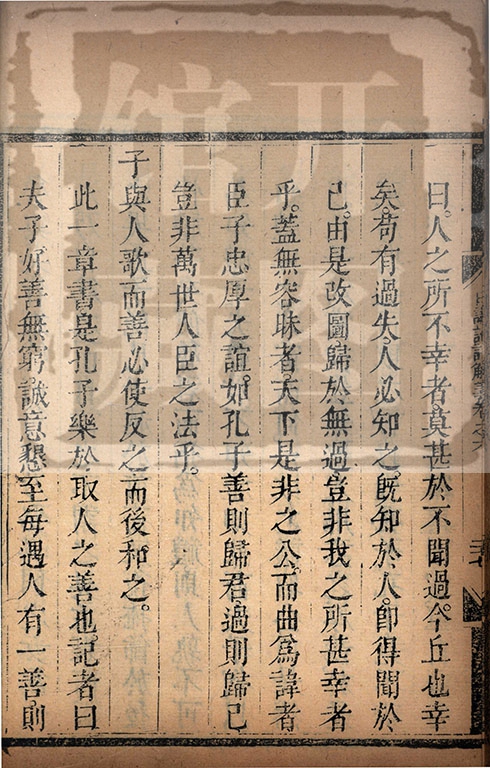 曰人之所不幸者莫甚於不聞過今丘也幸
矣苟有過失人必知之旣知於人即得聞於
己由是改圖歸於無過豈非我之所甚幸者
乎蓋無容昧者天下是非之公而曲爲諱者
臣子忠厚之誼如孔子善則歸君過則歸己
豈非萬世人臣之法乎
子與人歌而善必使反之而後和之
此一章書是孔子樂於取人之善也記者曰
夫子好善無窮誠意懇至每遇人有一善則